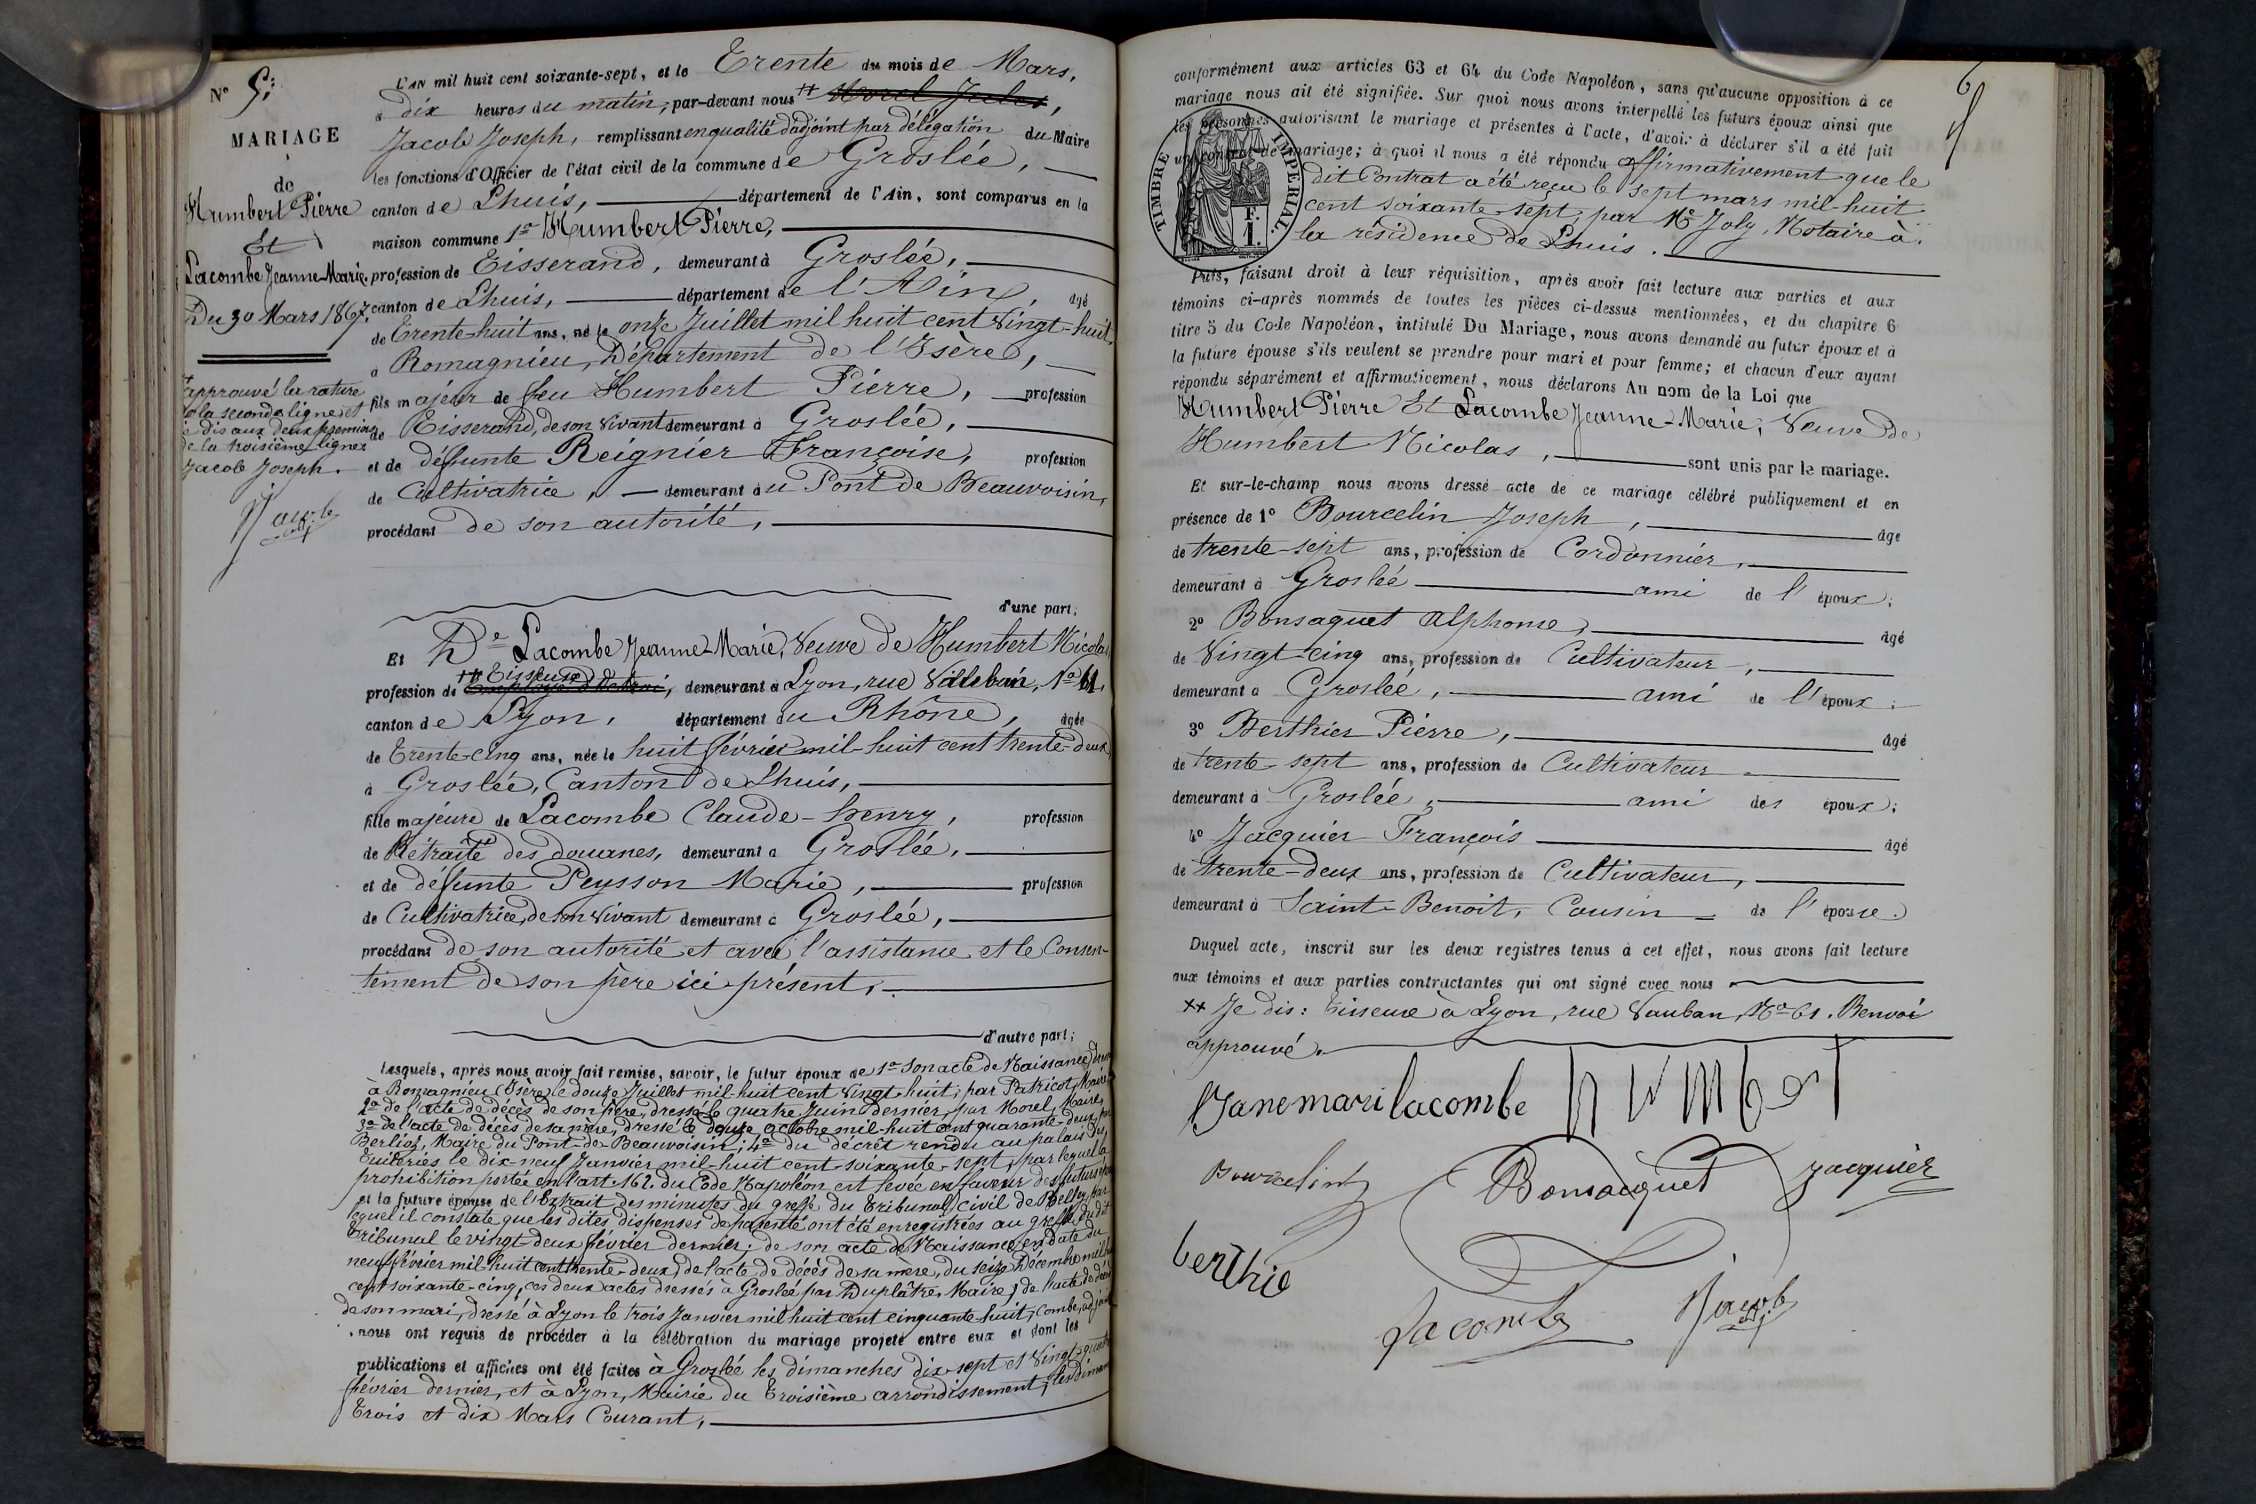 N° 5.
MARIAGE
de
Humbert Pierre
Et
Lacombe Jeanne-Marie.
Du 30 Mars 1867.
approuvé la rature
à la seconde ligne et
je dis aux deux premiers
de la troisième lignes
Jacob Joseph.
Jacob
L'AN mil huit cent soixante-sept, et le Trente du mois de Mars,
à dix heures du matin, par-devant nous ++ Morel Jules,
Jacob Joseph, remplissant en qualité d'adjoint par délégation du Maire
les fonctions d'Officier de l'état civil de la commune de Groslée,
canton de Lhuis, département de l'Ain, sont comparus en la
maison commune 1° Humbert Pierre,
profession de Tisserand, demeurant à Groslée,
canton de Lhuis, département de l'Ain, âgé
de Trente-huit ans, né le onze Juillet mil huit cent vingt-huit,
à Romagnieu, Département de l'Isère,
fils majeur de feu Humbert Pierre, profession
de Tisserand, de son vivant demeurant à Groslée,
et de défunte Reignier Françoise, profession
de Cultivatrice, demeurant au Pont de Beauvoisin,
procédant de son autorité,
d'une part;
Et De Lacombe Jeanne-Marie, Veuve de Humbert Nicolas,
++ Tisseuse
profession de demeurant à Lyon, rue Vauban, N° 61,
canton de Lyon, département du Rhône, âgée
de Trente-cinq ans, née le huit février mil-huit cent trente-deux
à Groslée, Canton de Lhuis,
fille majeure de Lacombe Claude-henry, profession
de Rétraité des douanes, demeurant a Groslée,
et de défunte Peysson Marie, profession
de Cultivatrice, de son vivant demeurant à Groslée,
procédant de son autorité et avec l'assistance et le Consen-
tement de son père ici présent,
d'autre part;
Lesquels, après nous avoir fait remise, savoir, le futur époux de 1° Son acte de Naissance, dressé
à Romagnieu (Isère) le douze Juillet mil-huit cent vingt-huit, par Patricot, Maire;
2° de l'acte de décès de son père, dressé le quatre Juin dernier, par Morel, Maire,
3° de l'acte de décès de sa mère, dressé le douze octobre mil-huit cent quarante-deux, par
Berlioz, Maire du Pont-de-Beauvoisin; 4° du décrêt rendu au palais des
Tuileries le dix-neuf Janvier mil-huit cent-soixante-sept, par lequel la
prohibition portée en l'art. 162 du Code Napoléon est levée en faveur des futurs époux
et la future épouse de l'Extrait des minutes du greffe du Tribunal civil de Belley, par
lequel il constate que les dites dispenses de parenté ont été enregistrées au greffe dudit
Tribunal le vingt-deux février dernier; de son acte de Naissance, en date du
neuf février mil huit cent trente-deux, de l'acte de décès de sa mère, du seize Décembre mil huit
cent soixante-cinq, ces deux actes dressés à Groslée par Duplâtre, Maire, de l'acte de décès
de son mari, dressé à Lyon le trois Janvier mil huit cent cinquante-huit, Combe, adjoint
nous ont requis de procéder à la célébration du mariage projeté entre eux et dont les
publications et affiches ont été faites à Groslée les dimanches dix-sept et vingt-quatre
février dernier, et à Lyon, Mairie du Troisième arrondissement, les dimanches
Trois et dix Mars Courant,
6
conformément aux articles 63 et 64 du Code Napoléon, sans qu'aucune opposition à ce
mariage nous ait été signifiée. Sur quoi nous avons interpellé les futurs époux ainsi que
les personnes autorisant le mariage et présentes à l'acte, d'avoir à déclarer s'il a été fait
un contrat de mariage; à quoi il nous a été répondu affirmativement que le
dit Contrat a été reçu le sept mars mil-huit
cent soixante-sept, par Me Joly, Notaire à
la résidence de Lhuis.
TIMBRE IMPERIAL.
F. I.
Puis, faisant droit à leur réquisition, après avoir fait lecture aux parties et aux
témoins ci-après nommés de toutes les pièces ci-dessus mentionnées, et du chapitre 6
titre 5 du Code Napoléon, intitulé Du Mariage, nous avons demandé au futur époux et à
la future épouse s'ils veulent se prendre pour mari et pour femme; et chacun d'eux ayant
répondu séparément et affirmativement, nous déclarons Au nom de la Loi que
Humbert Pierre Et Lacombe Jeanne-Marie, Veuve de
Humbert Nicolas, sont unis par le mariage.
Et sur-le-champ nous avons dressé acte de ce mariage célébré publiquement et en
présence de 1° Bourcelin Joseph, âgé
de trente-sept ans, profession de Cordonnier,
demeurant à Groslée ami de l'époux;
2° Bonsaquet Alphonse, âgé
de Vingt-cinq ans, profession de Cultivateur,
demeurant a Groslée, ami de l'époux;
3° Berthier Pierre, âgé
de trente-sept ans, profession de Cultivateur
demeurant à Groslée, ami des époux;
4° Jacquier François âgé
de trente-deux ans, profession de Cultivateur,
demeurant à Saint-Benoit, Cousin de l'épouse.
Duquel acte, inscrit sur les deux registres tenus à cet effet, nous avons fait lecture
aux témoins et aux parties contractantes qui ont signé avec nous
++ Je dis: Tisseuse à Lyon, rue Vauban, N° 61. Renvoi
approuvé.
Janemarilacombe humbert
Bourcelin Bonsacquet Jacquier
berthie
Lacombe Jacob